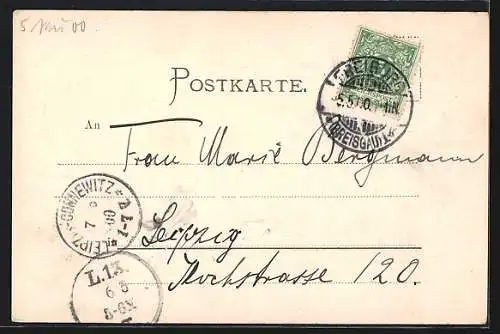 5 Mai 00
POSTKARTE.
FREIBURG
5.5.00.
(BREISGAU)
An
Frau Marie Bergmann
LEIPZIG-CONNEWITZ
7 5 00
Leipzig
Hochstrasse 120.
L.13.
6 5
5-6N